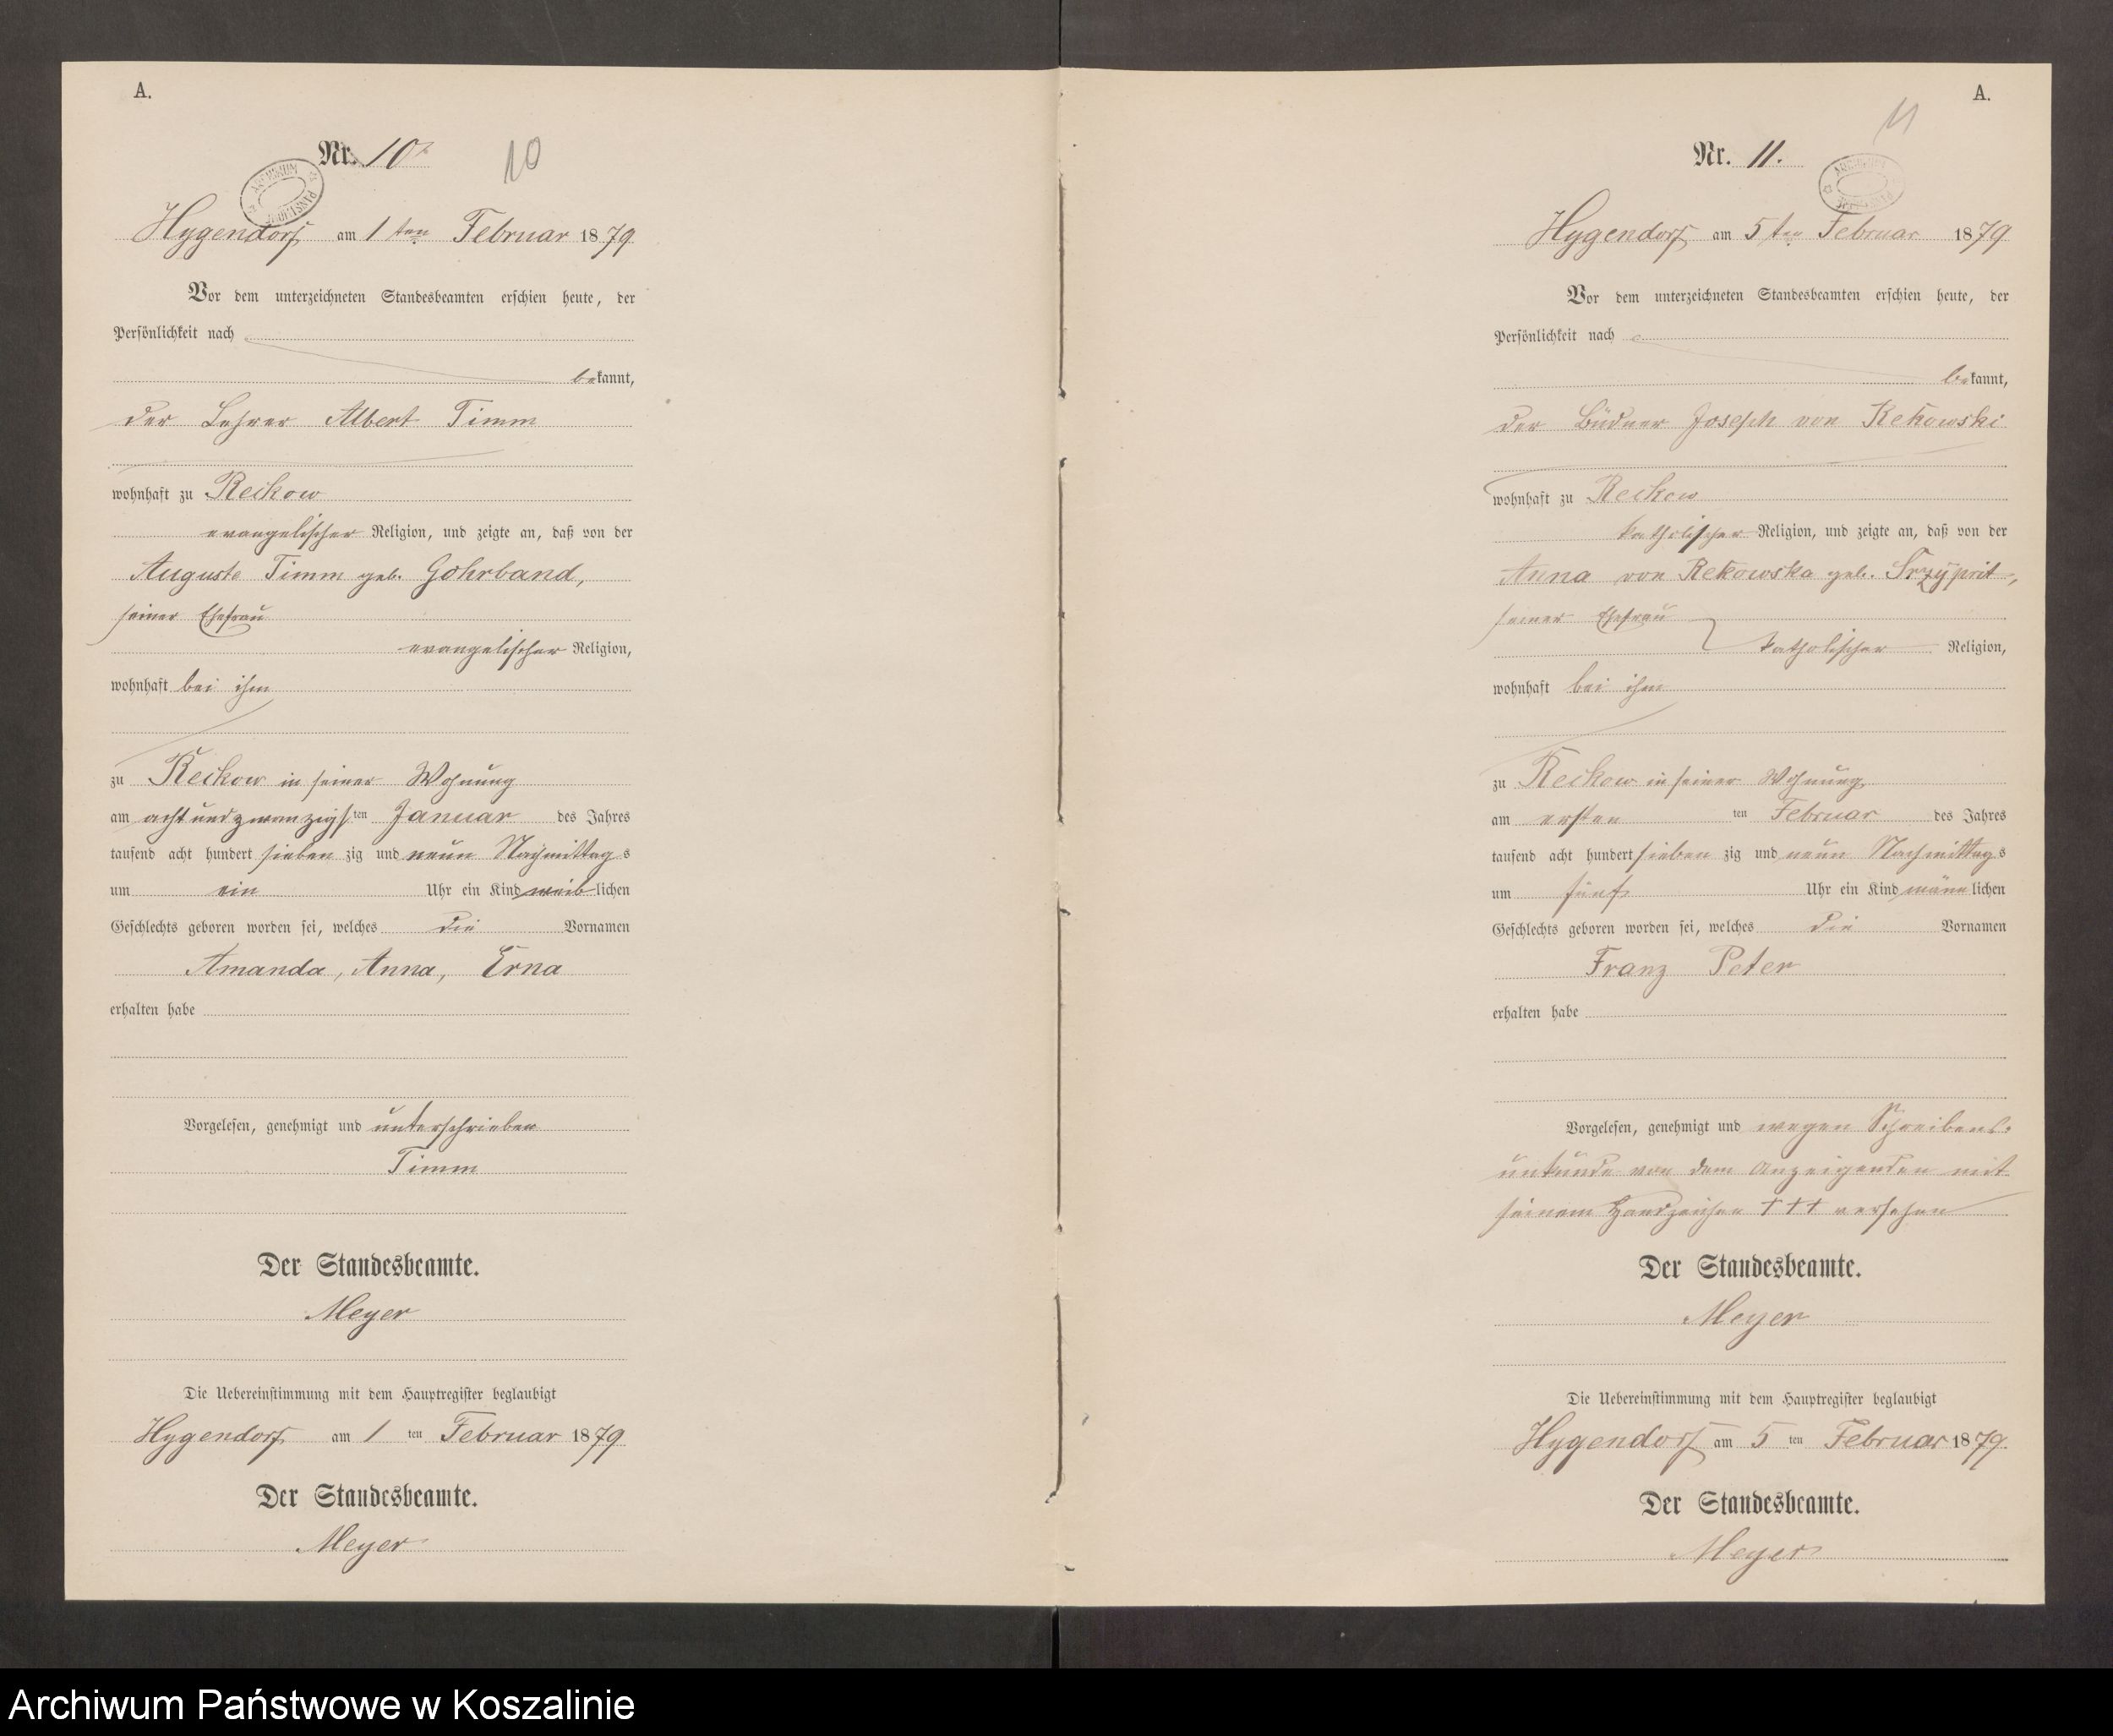 A.
Nr. 10.
10
ARCHIWUM PAŃSTWOWE
Hygendorf am 1 ten Februar 1879
Vor dem unterzeichneten Standesbeamten erschien heute, der
Persönlichkeit nach
bekannt,
der Lehrer Albert Timm
wohnhaft zu Reckow
evangelischer Religion, und zeigte an, daß von der
Auguste Timm geb. Gohrband,
seiner Ehefrau
evangelischer Religion,
wohnhaft bei ihm
zu Reckow in seiner Wohnung
am achtundzwanzigsten Januar des Jahres
tausend acht hundert sieben zig und neun Nachmittags
um ein Uhr ein Kind weiblichen
Geschlechts geboren worden sei, welches die Vornamen
Amanda, Anna, Erna
erhalten habe
Vorgelesen, genehmigt und unterschrieben
Timm
Der Standesbeamte.
Meyer
Die Uebereinstimmung mit dem Hauptregister beglaubigt
Hygendorf am 1 ten Februar 1879
Der Standesbeamte.
Meyer
A.
11
Nr. 11.
Hygendorf am 5 ten Februar 1879
Vor dem unterzeichneten Standesbeamten erschien heute, der
Persönlichkeit nach
bekannt,
der Büdner Joseph von Rekowski
wohnhaft zu Reckow
katholischer Religion, und zeigte an, daß von der
Anna von Rekowska geb.
seiner Ehefrau
katholischer Religion,
wohnhaft bei ihm
zu Reckow in seiner Wohnung
am ersten ten Februar des Jahres
tausend acht hundert sieben zig und neun Nachmittags
um fünf Uhr ein Kind männlichen
Geschlechts geboren worden sei, welches die Vornamen
Franz Peter
erhalten habe
Vorgelesen, genehmigt und wegen Schreibens-
unkunde von dem Anzeigenden mit
seinem Handzeichen +++ versehen
Der Standesbeamte.
Meyer
Die Uebereinstimmung mit dem Hauptregister beglaubigt
Hygendorf am 5 ten Februar 1879
Der Standesbeamte.
Meyer
Archiwum Państwowe w Koszalinie